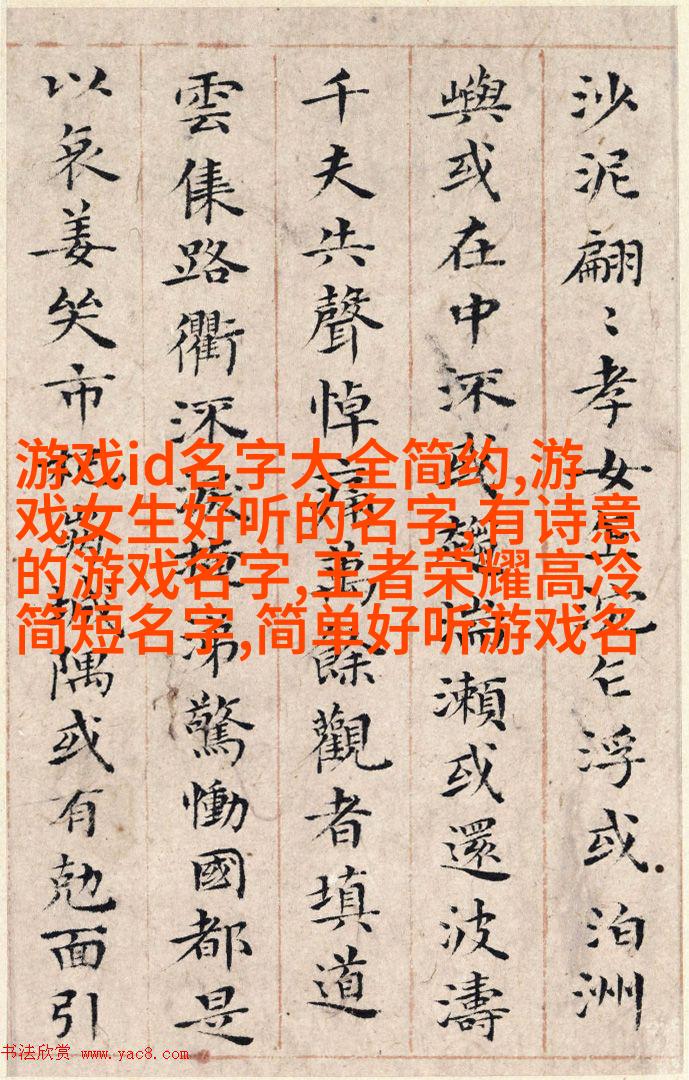 沙泥翩〻孝女沉浮或泊洲
嶼或在中流或趨湍瀨或還波濤
千夫共聲悼痛萬餘觀者填道
雲集路衢流淚掩涕驚慟國都是
以哀姜哭市杞崩城隅或有勊面引
游戏id名字大全简约,游
戏女生好听的名字,有诗意
的游戏名字,王者荣耀高冷
简短名字,简单好听游戏名
书法欣赏 www.yac8.com